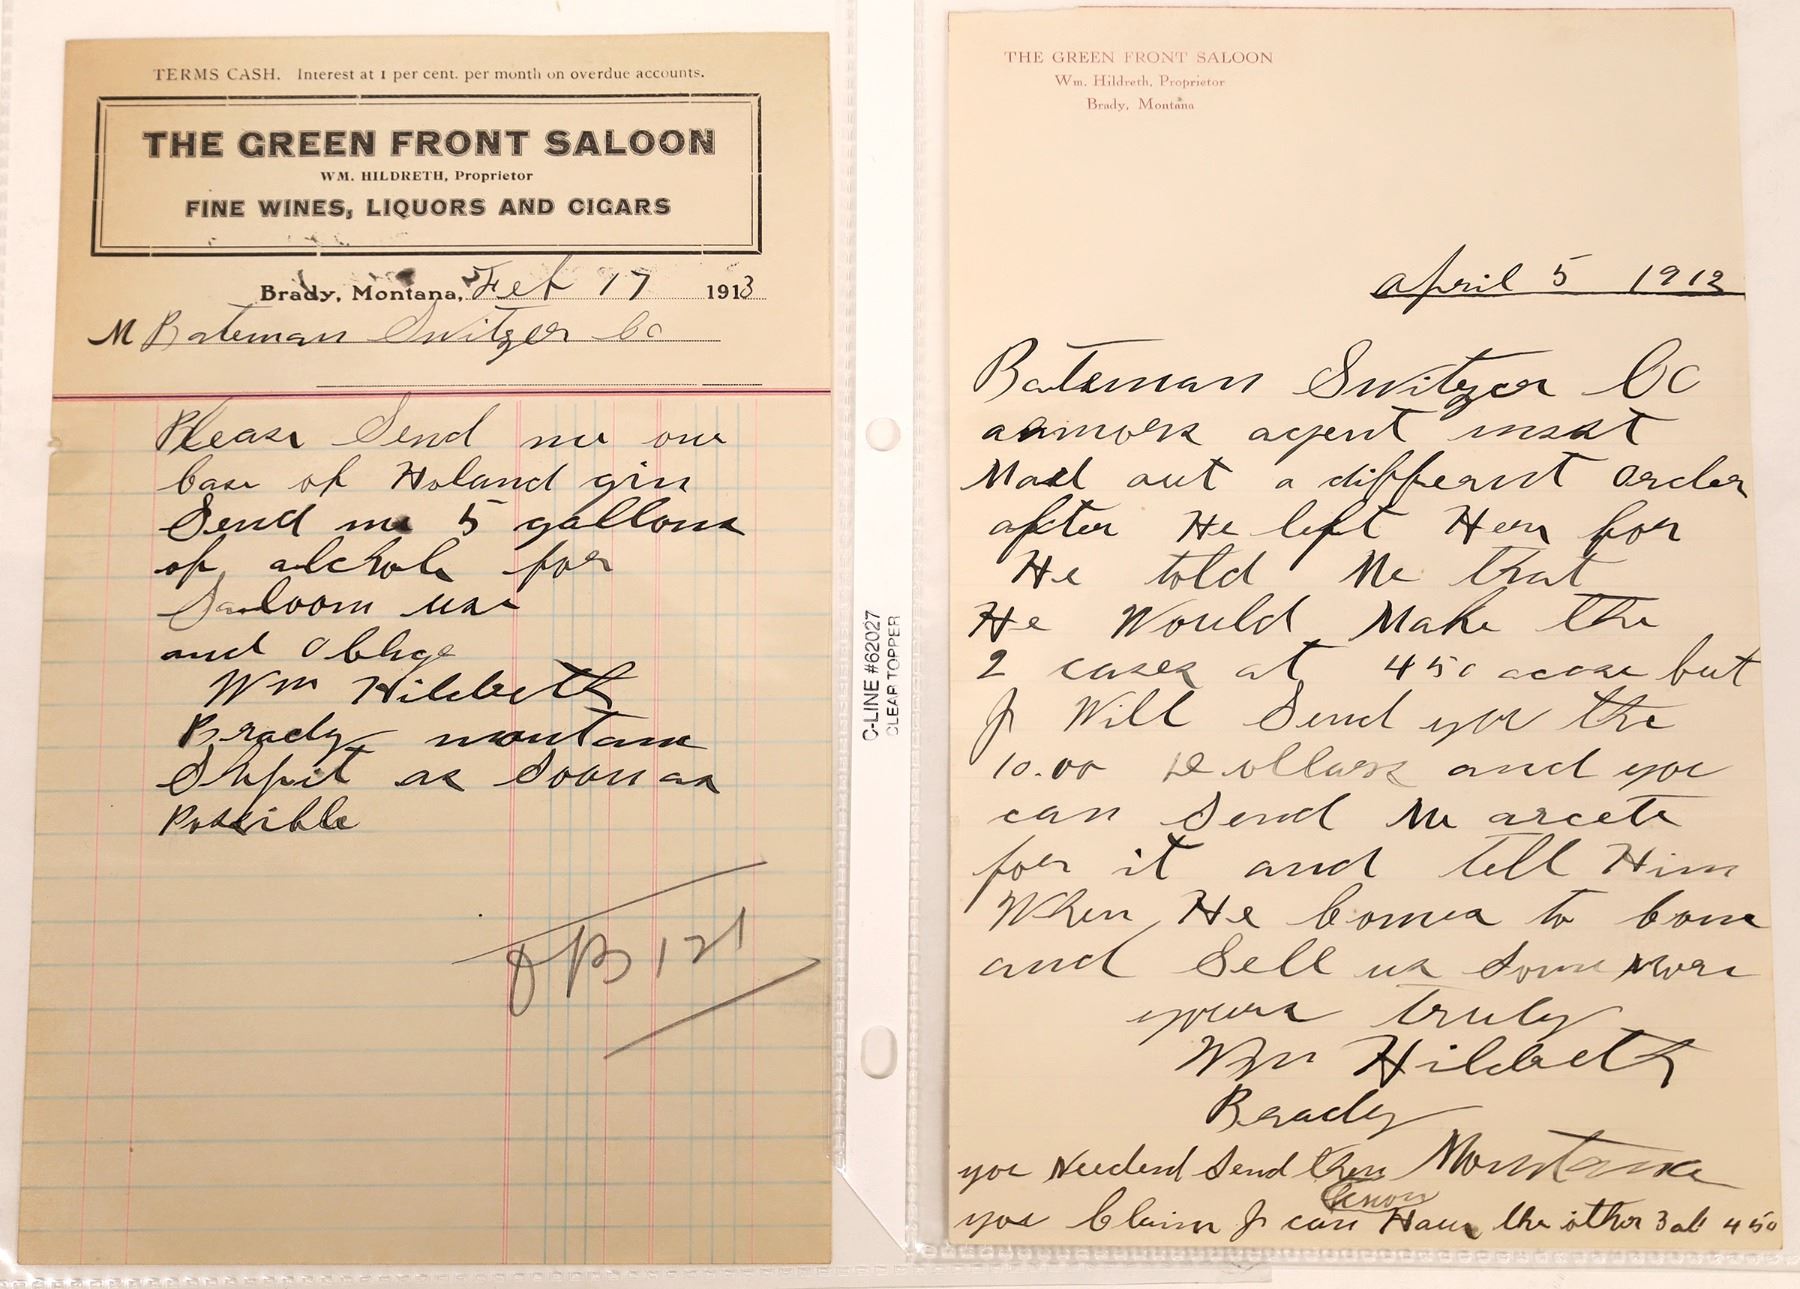 TERMS CASH. Interest at 1 per cent. per month on overdue accounts.
THE GREEN FRONT SALOON
WM. HILDRETH, Proprietor
FINE WINES, LIQUORS AND CIGARS
Brady, Montana, Feb 17 1913
M Bateman Switzer Co
Please Send me one
base of Holand gin
Send me 5 gallons
of alchole for
Saloom use
and Oblige
Wm Hildreth
Brady montana
Shipit as Soon as
Possible
121
C-LINE #62027
CLEAR TOPPER
THE GREEN FRONT SALOON
Wm. Hildreth, Proprietor
Brady, Montana
april 5 1912
Bateman Switzer Co
agent must
Mad out a differnt Order
after He left Here for
He told Me that
He Would Make the
2 cases at 450 acase but
I Will Send you the
10.00 Dollars and you
can Send Me arcete
for it and tell Him
When He Comes to Come
and Sell us Some More
yours truly
Wm Hildreth
Brady
Montana
you Neednd Send them
you Claim I can Have the other 3 at 450